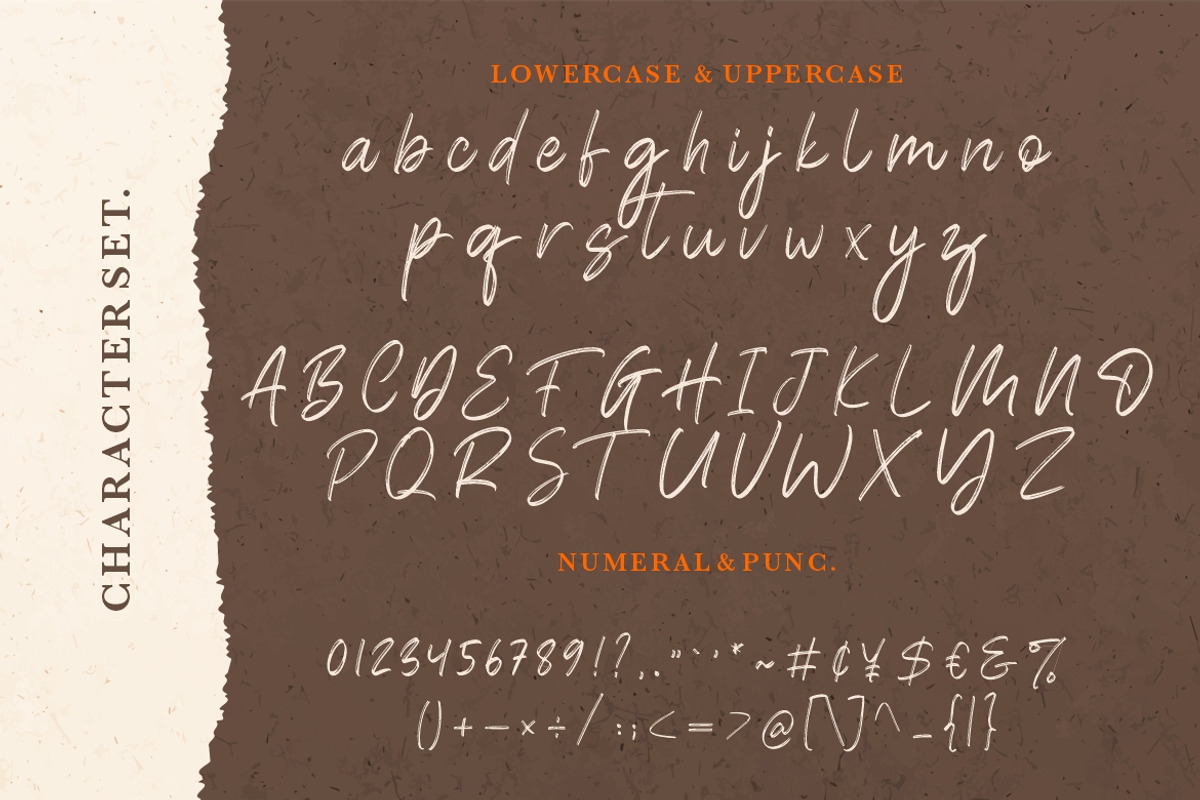 CHARACTERSET.
LOWERCASE & UPPERCASE
a b c d e f g h i j k l m n o
p q r s t u v w x y z
A B C D E F G H I J K L M N O
P Q R S T U V W X Y Z
NUMERAL & PUNC.
0 1 2 3 4 5 6 7 8 9 ! ? , . " " ' ' * ~ # ¢ ¥ $ € & %
( ) + – × ÷ / : ; < = > @ [ \ ] ^ _ { | }